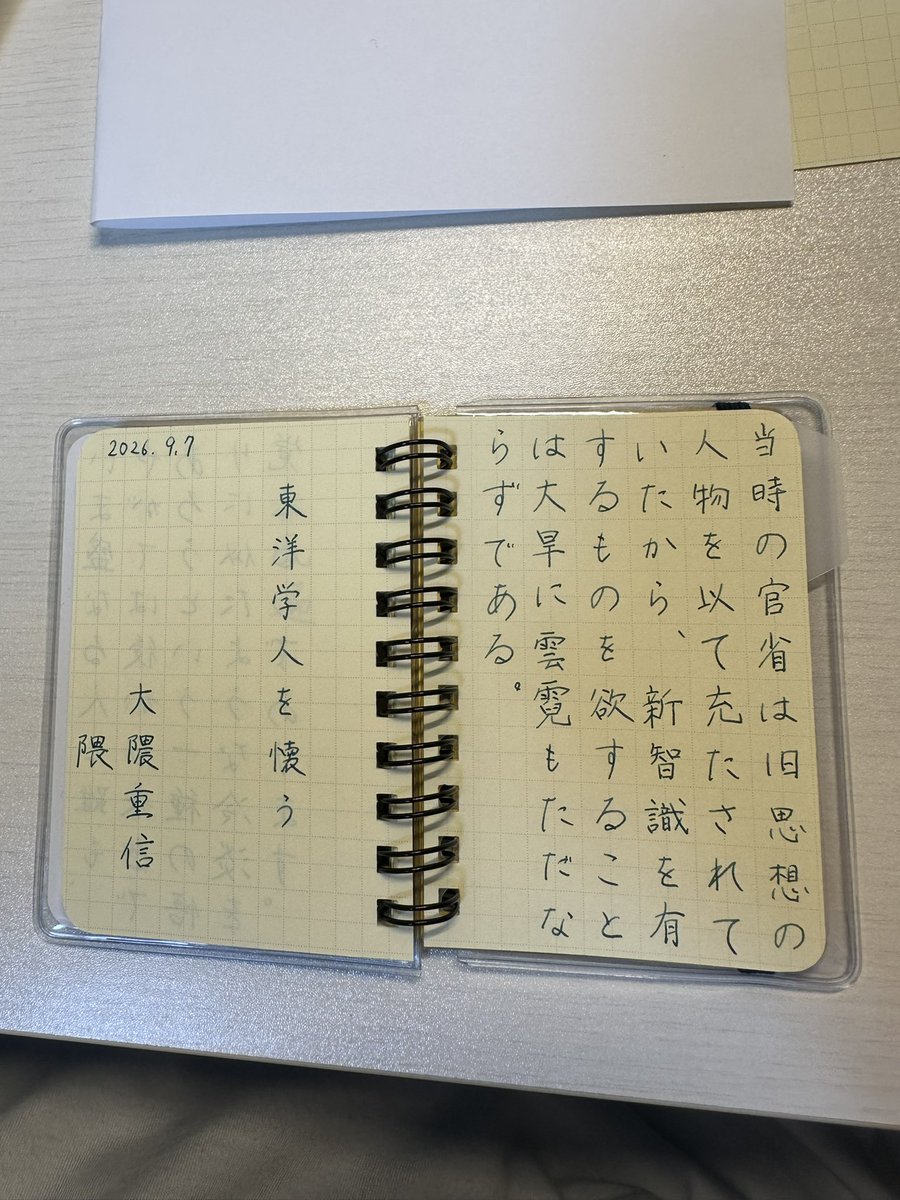 当時の官省は旧思想の
人物を以て充たされて
いたから、新智識を有
するものを欲すること
は大旱に雲霓もただな
らずである。
2026.9.7
東洋学人を懐う
大隈重信
隈